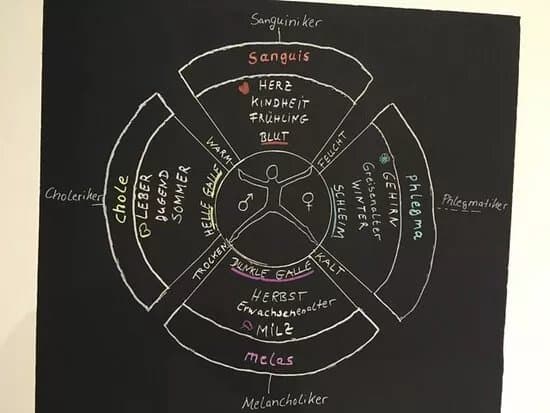 Sanguiniker
Sanguis
HERZ
KINDHEIT
FRÜHLING
BLUT
WARM
FEUCHT
Choleriker
Chole
LEBER
JUGEND
SOMMER
HELLE GALLE
♂
♀
SCHLEIM
WINTER
Greisenalter
GEHIRN
Phlegma
Phlegmatiker
TROCKEN
KALT
DUNKLE GALLE
HERBST
Erwachsenenalter
MILZ
melas
Melancholiker